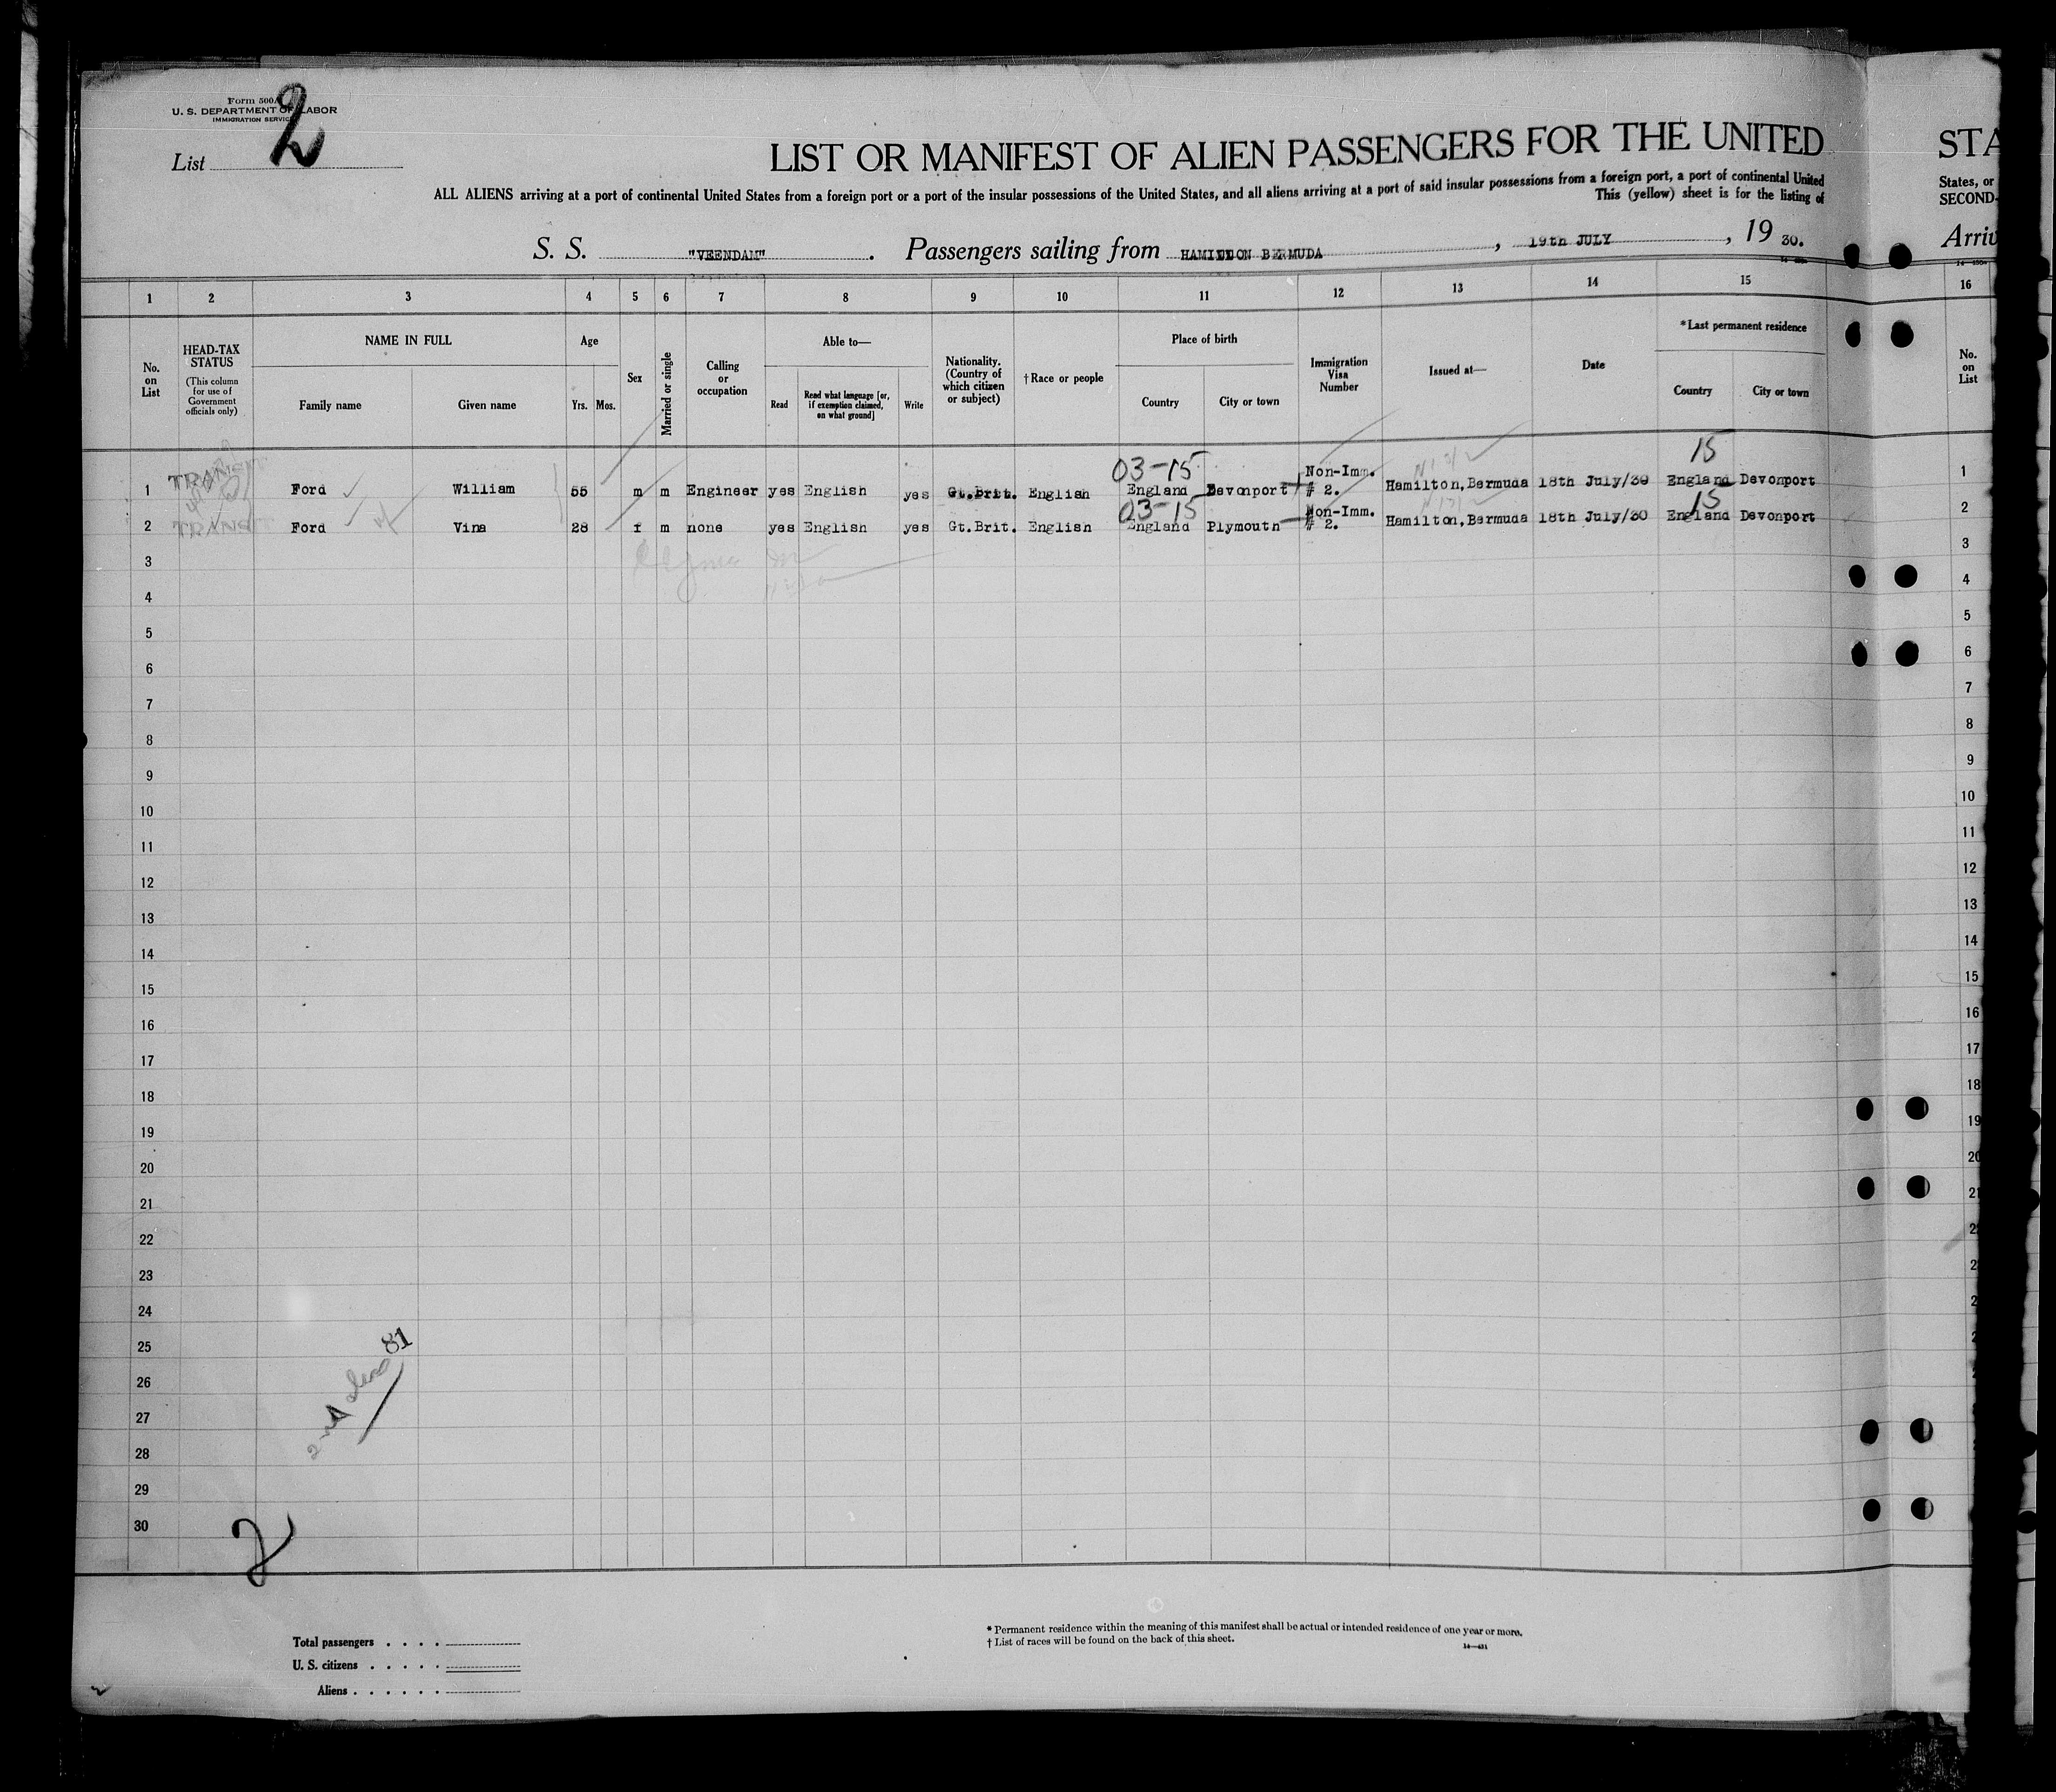 Form 500A
U. S. DEPARTMENT OF LABOR
IMMIGRATION SERVICE
2
List
LIST OR MANIFEST OF ALIEN PASSENGERS FOR THE UNITED
STA
ALL ALIENS arriving at a port of continental United States from a foreign port or a port of the insular possessions of the United States, and all aliens arriving at a port of said insular possessions from a foreign port, a port of continental United
States, or
This (yellow) sheet is for the listing of
SECOND-
S. S. "VEENDAM". Passengers sailing from HAMILTON BERMUDA, 19th JULY, 19 30.
Arriv
1 2 3 4 5 6 7 8 9 10 11 12 13 14 15 16
No. on List
HEAD-TAX STATUS
(This column for use of Government officials only)
NAME IN FULL
Family name
Given name
Age
Yrs. Mos.
Sex
Married or single
Calling or occupation
Able to—
Read
Read what language [or, if exemption claimed, on what ground]
Write
Nationality. (Country of which citizen or subject)
†Race or people
Place of birth
Country
City or town
Immigration Visa Number
Issued at—
Date
*Last permanent residence
Country
City or town
No. on List
03-15 15
1 TRANSIT Ford William 55 m m Engineer yes English yes Gt.Brit. English England Devonport Non-Imm. # 2. Hamilton,Bermuda 18th July/30 England Devonport 1
03-15 15
2 TRANSIT Ford Vina 28 f m none yes English yes Gt.Brit. English England Plymouth Non-Imm. # 2. Hamilton,Bermuda 18th July/30 England Devonport 2
3 3
4 4
5 5
6 6
7 7
8 8
9 9
10 10
11 11
12 12
13 13
14 14
15 15
16 16
17 17
18 18
19 19
20 20
21 21
22 2
23 2
24 2
25 2
26
27
28
29
30
81
2nd class
2
Total passengers
U. S. citizens
Aliens
* Permanent residence within the meaning of this manifest shall be actual or intended residence of one year or more.
† List of races will be found on the back of this sheet.
14—431